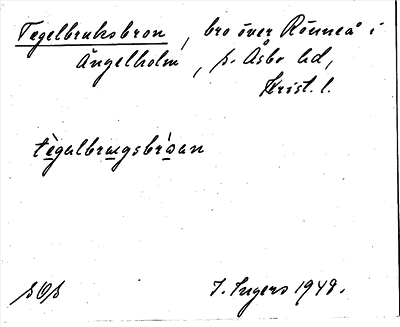 Tegelbruksbron, bro över Rönneå i
Ängelholm, s. Åsbo hd,
Krist. l.
tegalbrugsbroan
sOs
I. Ingers 1948.